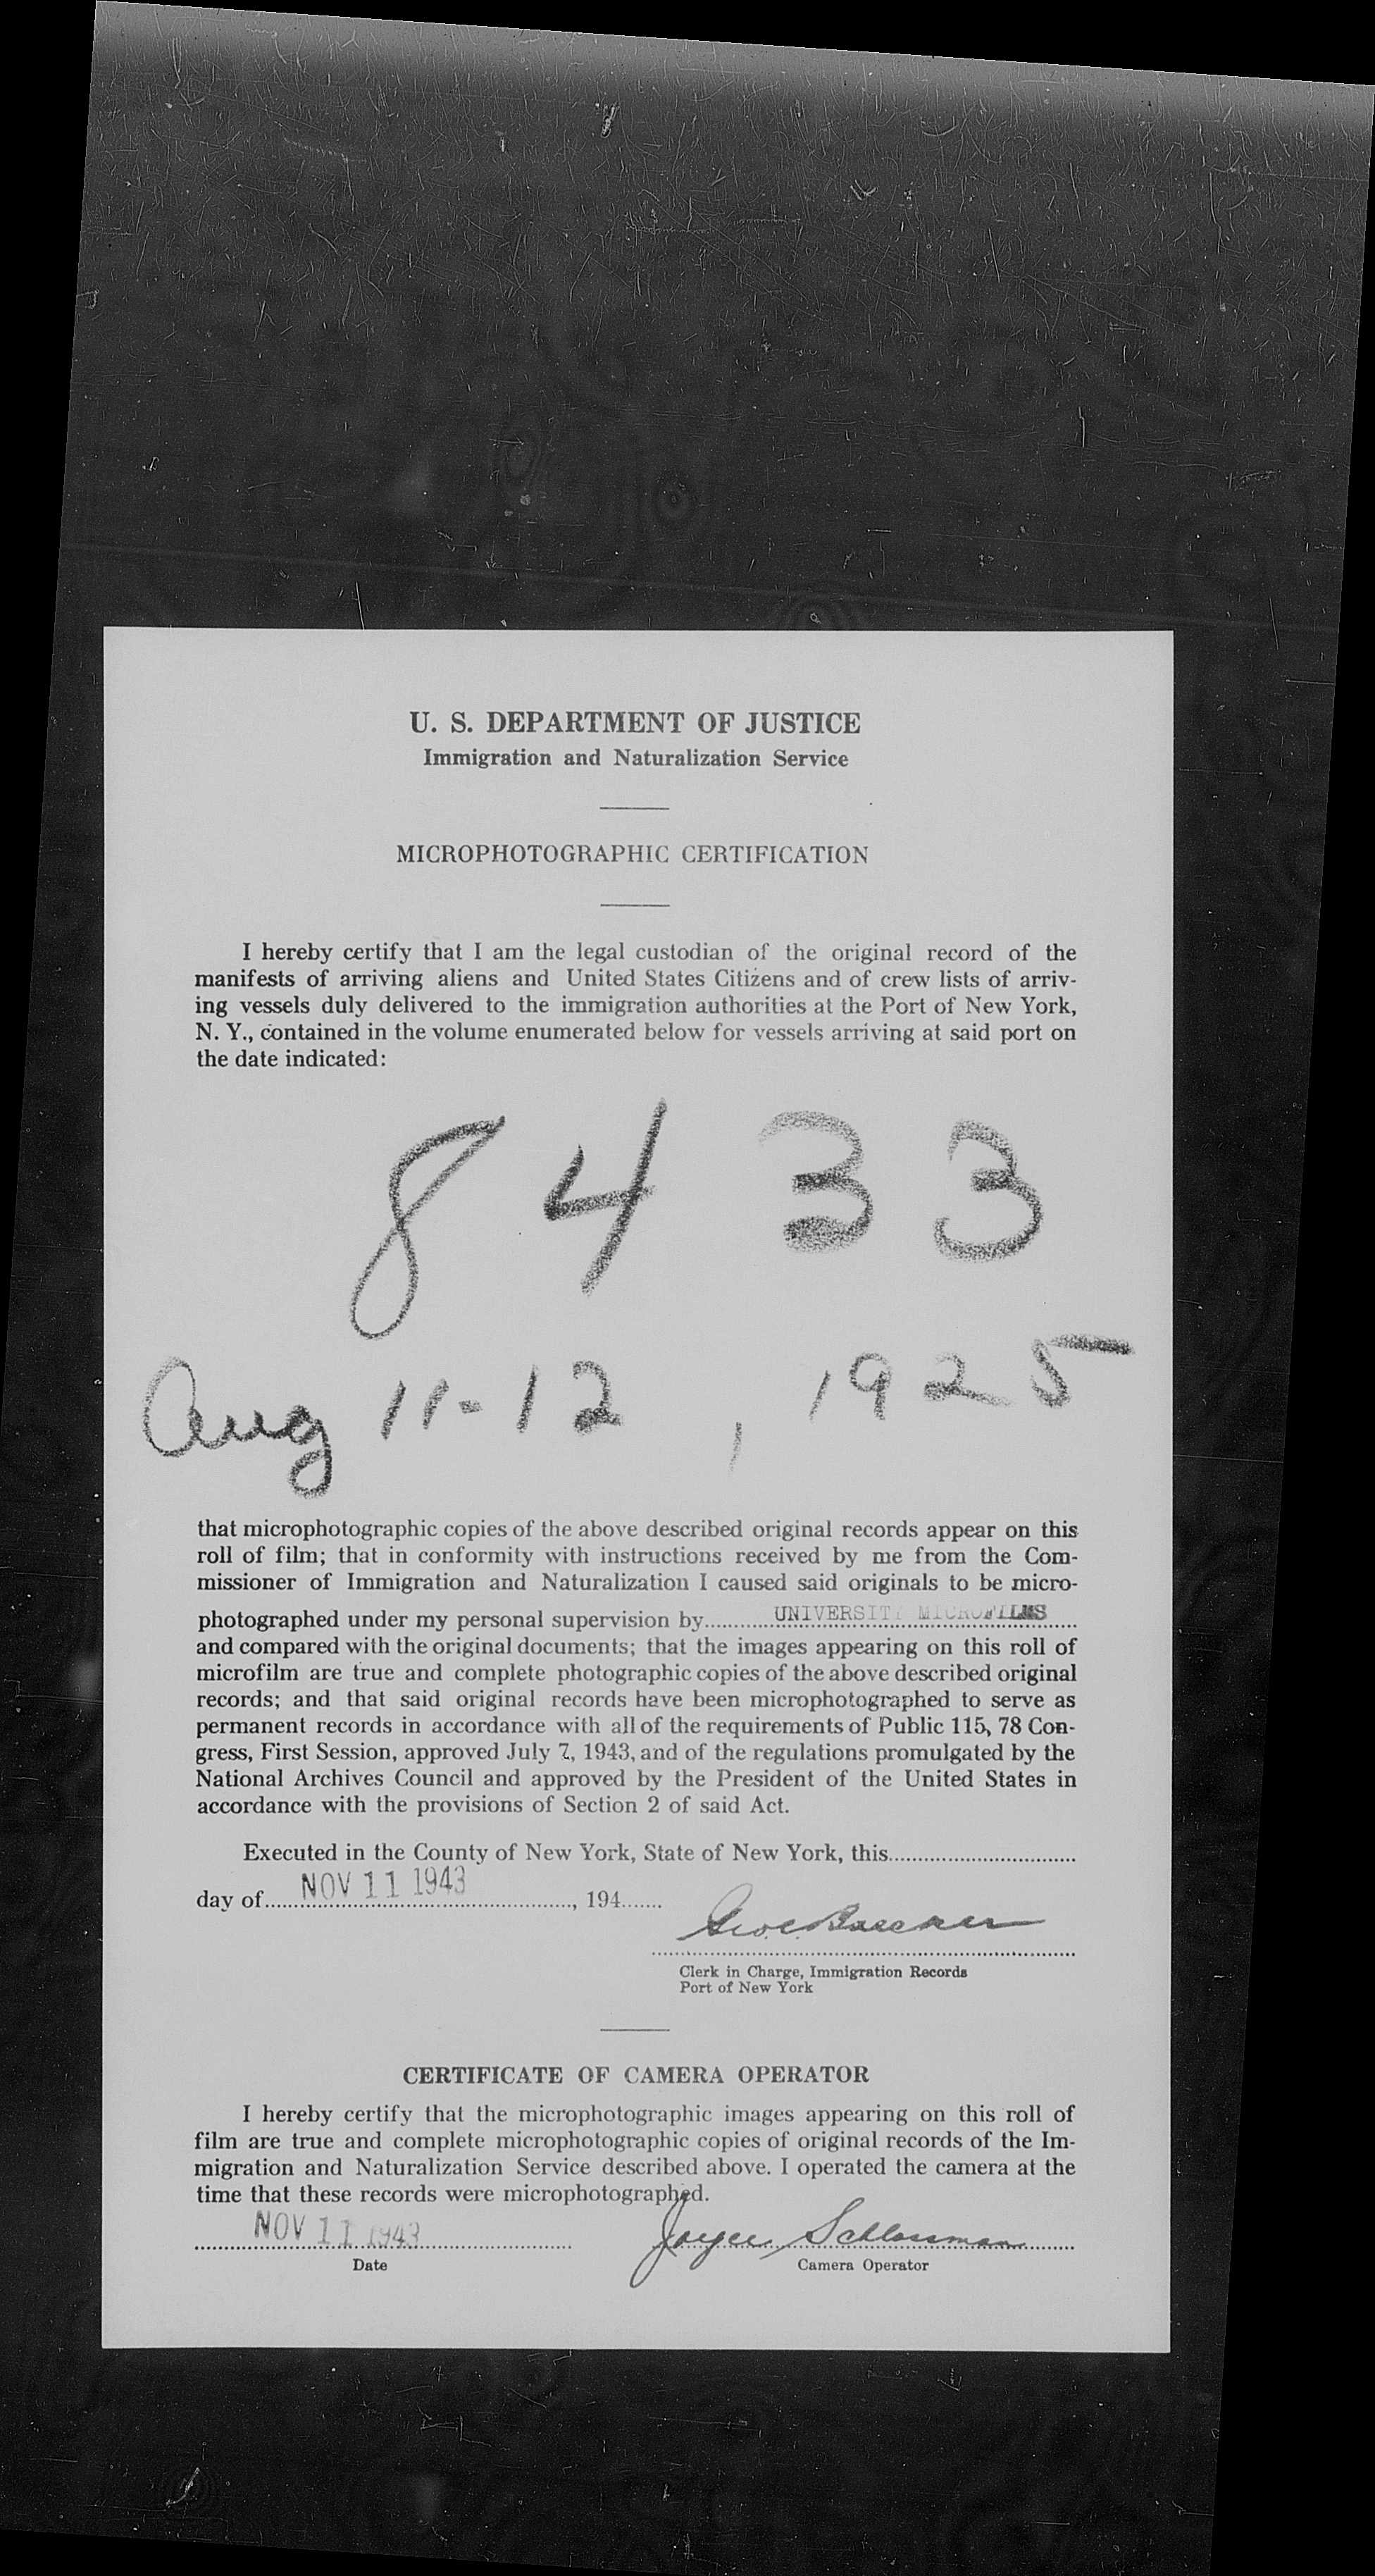 U. S. DEPARTMENT OF JUSTICE
Immigration and Naturalization Service
MICROPHOTOGRAPHIC CERTIFICATION
I hereby certify that I am the legal custodian of the original record of the
manifests of arriving aliens and United States Citizens and of crew lists of arriv-
ing vessels duly delivered to the immigration authorities at the Port of New York,
N. Y., contained in the volume enumerated below for vessels arriving at said port on
the date indicated:
8433
Aug 11-12, 1925
that microphotographic copies of the above described original records appear on this
roll of film; that in conformity with instructions received by me from the Com-
missioner of Immigration and Naturalization I caused said originals to be micro-
photographed under my personal supervision by UNIVERSITY MICROFILMS
and compared with the original documents; that the images appearing on this roll of
microfilm are true and complete photographic copies of the above described original
records; and that said original records have been microphotographed to serve as
permanent records in accordance with all of the requirements of Public 115, 78 Con-
gress, First Session, approved July 7, 1943, and of the regulations promulgated by the
National Archives Council and approved by the President of the United States in
accordance with the provisions of Section 2 of said Act.
Executed in the County of New York, State of New York, this
day of NOV 11 1943, 194
Clerk in Charge, Immigration Records
Port of New York
CERTIFICATE OF CAMERA OPERATOR
I hereby certify that the microphotographic images appearing on this roll of
film are true and complete microphotographic copies of original records of the Im-
migration and Naturalization Service described above. I operated the camera at the
time that these records were microphotographed.
NOV 11 1943 Joyce Schlossman
Date Camera Operator